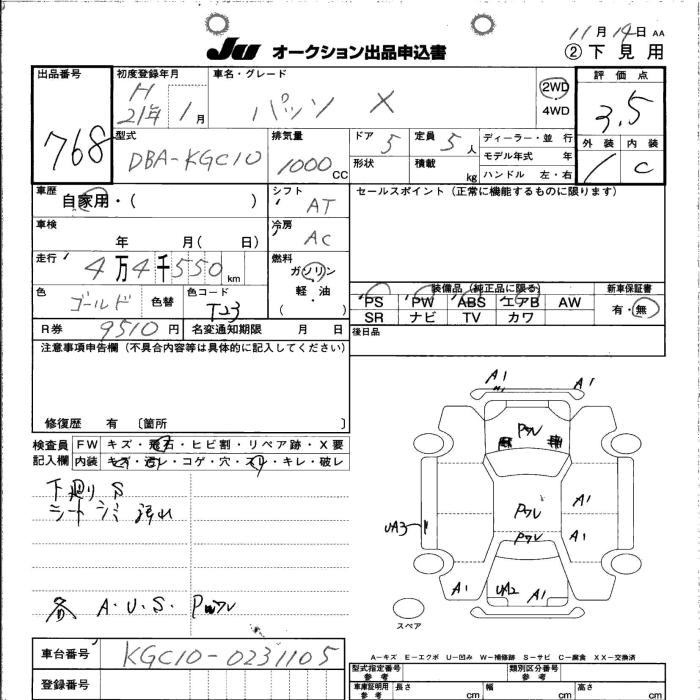 11月14日 AA
JU オークション出品申込書
② 下見用
出品番号
768
初度登録年月
H
21年 1月
車名・グレード
パッソ X
2WD
4WD
評価点
3.5
外装 内装
1 C
型式
DBA-KGC10
排気量
1000 CC
ドア 5
形状
定員 5人
積載 kg
ディーラー・並行
モデル年式 年
ハンドル 左・右
車歴
自家用・( )
シフト
AT
セールスポイント(正常に機能するものに限ります)
車検
年 月( 日)
冷房
AC
走行
4万4千550km
燃料
ガソリン
軽・油
( )
色
ゴールド
色替
色コード
T23
装備品(純正品に限る)
PS PW ABS エアB AW
SR ナビ TV カワ
新車保証書
有・無
R券 9510円
名変通知期限 月 日
後日品
注意事項申告欄(不具合内容等は具体的に記入してください)
修復歴 有 〔箇所 〕
検査員
記入欄
FW キズ・飛石・ヒビ割・リペア跡・X要
内装 キズ・汚レ・コゲ・穴・スレ・キレ・破レ
下廻り S
シート シミ 汚れ
各 A.U.S. Pwフレ
A1
A1
Pフレ
A1
Pフレ
Pフレ
UA3
A1
A1
UA2
A1
スペア
車台番号
KGC10-0231105
登録番号
A-キズ E-エクボ U-凹み W-補修跡 S-サビ C-腐食 XX-交換済
型式指定番号
参考
類別区分番号
参考
車庫証明用
参考
長さ cm
幅 cm
高さ cm